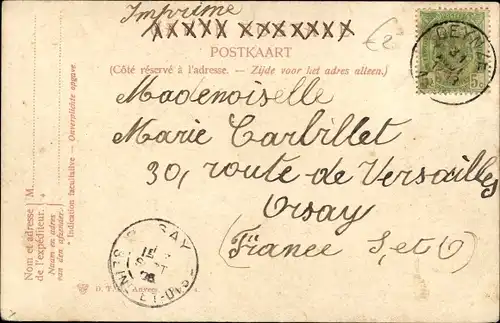 Imprimé
POSTKAART
(Côté réservé à l'adresse. – Zijde voor het adres alleen.)
Mademoiselle
Marie Carbillet
30, route de Versailles
Orsay
(France S. et O)
Nom et adresse de l'expéditeur. M.
Naam en adres van den afzender.
Indication facultative – Onverplichte opgave
DEYNZE
ORSAY
SEINE-ET-OISE
15
Anvers
€2